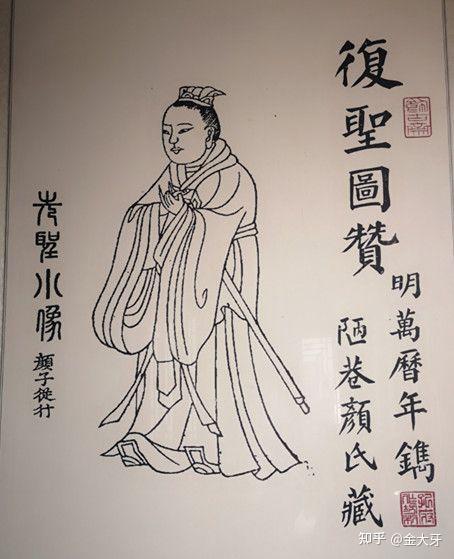 復聖圖贊
明萬曆年鐫
陋巷顏氏藏
先聖小像
顏子從行
知乎 @金大牙